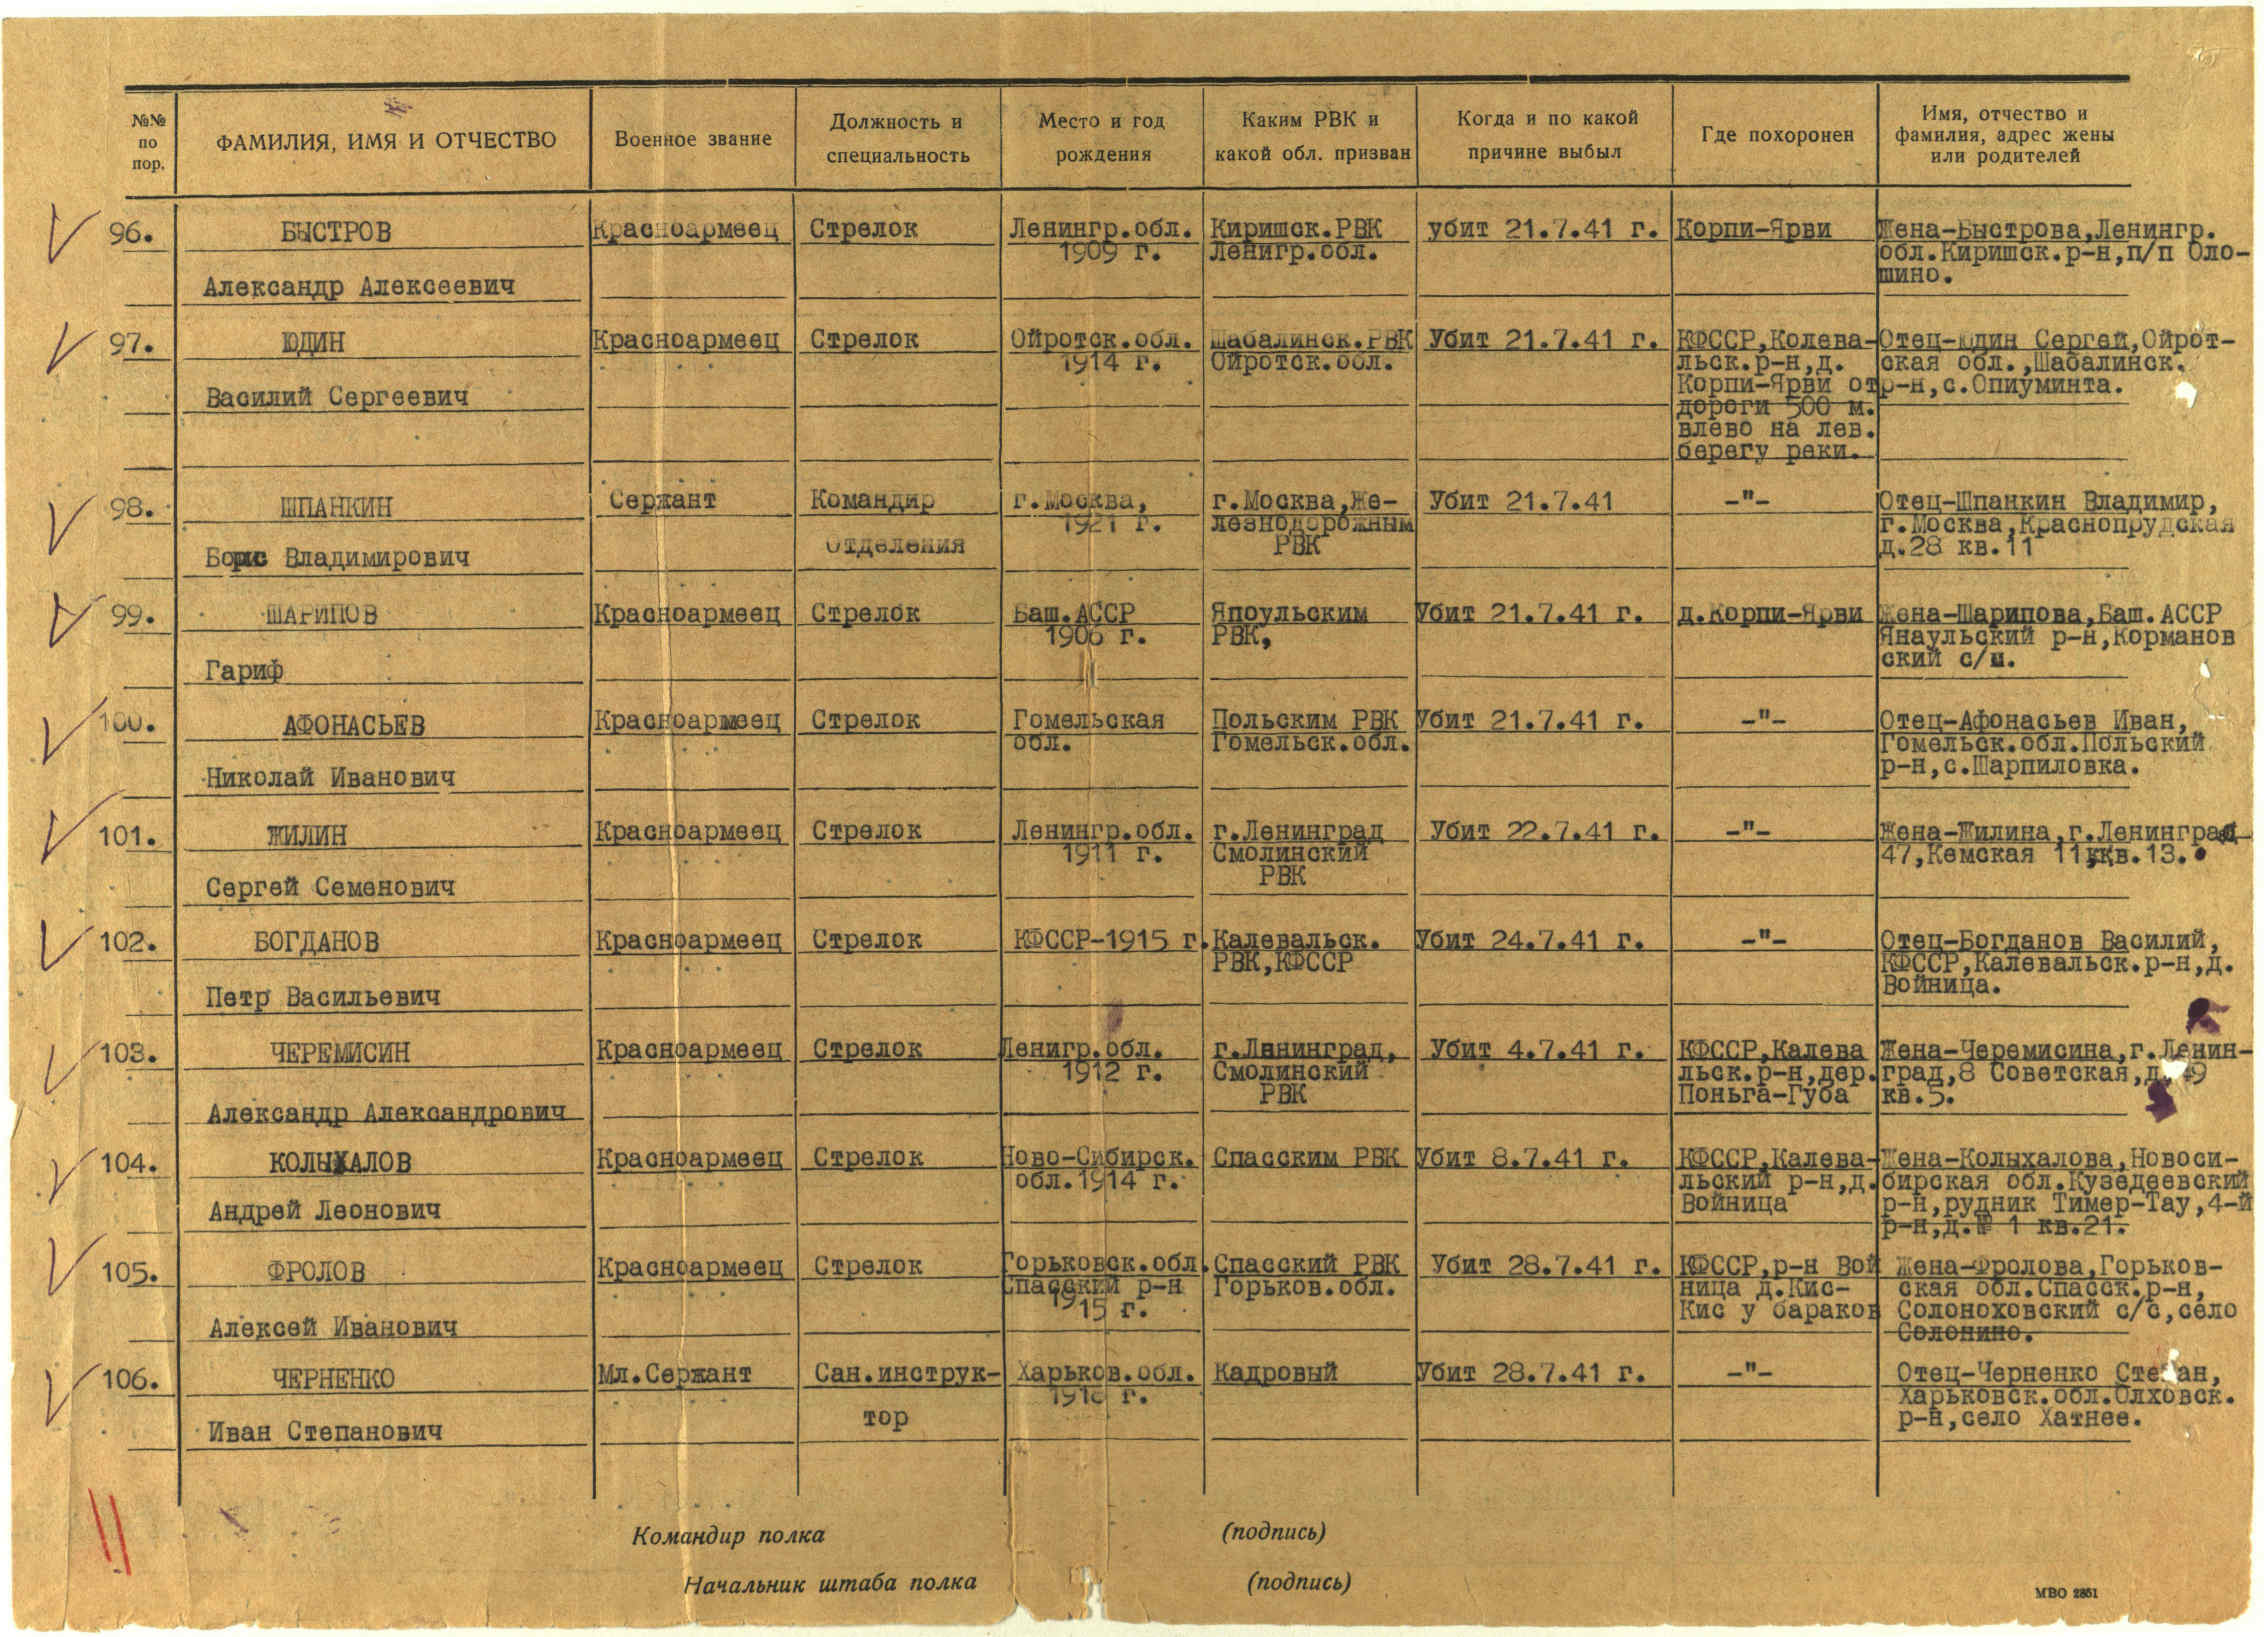 №№ по пор.
ФАМИЛИЯ, ИМЯ И ОТЧЕСТВО
Военное звание
Должность и специальность
Место и год рождения
Каким РВК и какой обл. призван
Когда и по какой причине выбыл
Где похоронен
Имя, отчество и фамилия, адрес жены или родителей
96.
БЫСТРОВ
Александр Алексеевич
Красноармеец
Стрелок
Ленингр.обл.
1909 г.
Киришск.РВК
Ленигр.обл.
убит 21.7.41 г.
Корпи-Ярви
Жена-Быстрова,Ленингр.
обл.Киришск.р-н,п/п Оло-
шино.
97.
ЮДИН
Василий Сергеевич
Красноармеец
Стрелок
Ойротск.обл.
1914 г.
Шабалинск.РВК
Ойротск.обл.
Убит 21.7.41 г.
КФССР,Колева-
льск.р-н,д.
Корпи-Ярви от
дороги 500 м.
влево на лев.
берегу реки.
Отец-Юдин Сергей,Ойрот-
ская обл.,Шабалинск.
р-н,с.Опиуминта.
98.
ШПАНКИН
Борис Владимирович
Сержант
Командир
Отделения
г.Москва,
1921 г.
г.Москва,Же-
лезнодорожным
РВК
Убит 21.7.41
-"-
Отец-Шпанкин Владимир,
г.Москва,Краснопрудская
д.28 кв.11
99.
ШАРИПОВ
Гариф
Красноармеец
Стрелок
Баш.АССР
1906 г.
Япоульским
РВК,
Убит 21.7.41 г.
д.Корпи-Ярви
Жена-Шарипова,Баш.АССР
Янаульский р-н,Корманов
ский с/ш.
100.
АФОНАСЬЕВ
Николай Иванович
Красноармеец
Стрелок
Гомельская
обл.
Польским РВК
Гомельск.обл.
Убит 21.7.41 г.
-"-
Отец-Афонасьев Иван,
Гомельск.обл.Польский
р-н,с.Шарпиловка.
101.
ЖИЛИН
Сергей Семенович
Красноармеец
Стрелок
Ленингр.обл.
1911 г.
г.Ленинград
Смолинский
РВК
Убит 22.7.41 г.
-"-
Жена-Жилина,г.Ленинград
47,Кемская 11 кв.13.
102.
БОГДАНОВ
Петр Васильевич
Красноармеец
Стрелок
КФССР-1915 г.
Калевальск.
РВК,КФССР
Убит 24.7.41 г.
-"-
Отец-Богданов Василий,
КФССР,Калевальск.р-н,д.
Войница.
103.
ЧЕРЕМИСИН
Александр Александрович
Красноармеец
Стрелок
Ленигр.обл.
1912 г.
г.Ленинград,
Смолинский
РВК
Убит 4.7.41 г.
КФССР,Калева
льск.р-н,дер.
Поньга-Губа
Жена-Черемисина,г.Ленин-
град,8 Советская,д. 49
кв.5.
104.
КОЛЫХАЛОВ
Андрей Леонович
Красноармеец
Стрелок
Ново-Сибирск.
обл.1914 г.
Спасским РВК
Убит 8.7.41 г.
КФССР,Калева-
льский р-н,д.
Войница
Жена-Колыхалова,Новоси-
бирская обл.Кузедеевский
р-н,рудник Тимер-Тау,4-й
р-н,д.№ 1 кв.21.
105.
ФРОЛОВ
Алексей Иванович
Красноармеец
Стрелок
Горьковск.обл.
Спасский р-н
1915 г.
Спасский РВК
Горьков.обл.
Убит 28.7.41 г.
КФССР,р-н Вой
ница д.Кис-
Кис у бараков
Жена-Фролова,Горьков-
ская обл.Спасск.р-н,
Солоноховский с/с,село
Солонино.
106.
ЧЕРНЕНКО
Иван Степанович
Мл.Сержант
Сан.инструк-
тор
Харьков.обл.
1918 г.
Кадровый
Убит 28.7.41 г.
-"-
Отец-Черненко Степан,
Харьковск.обл.Олховск.
р-н,село Хатнее.
Командир полка (подпись)
Начальник штаба полка (подпись)
МВО 2851